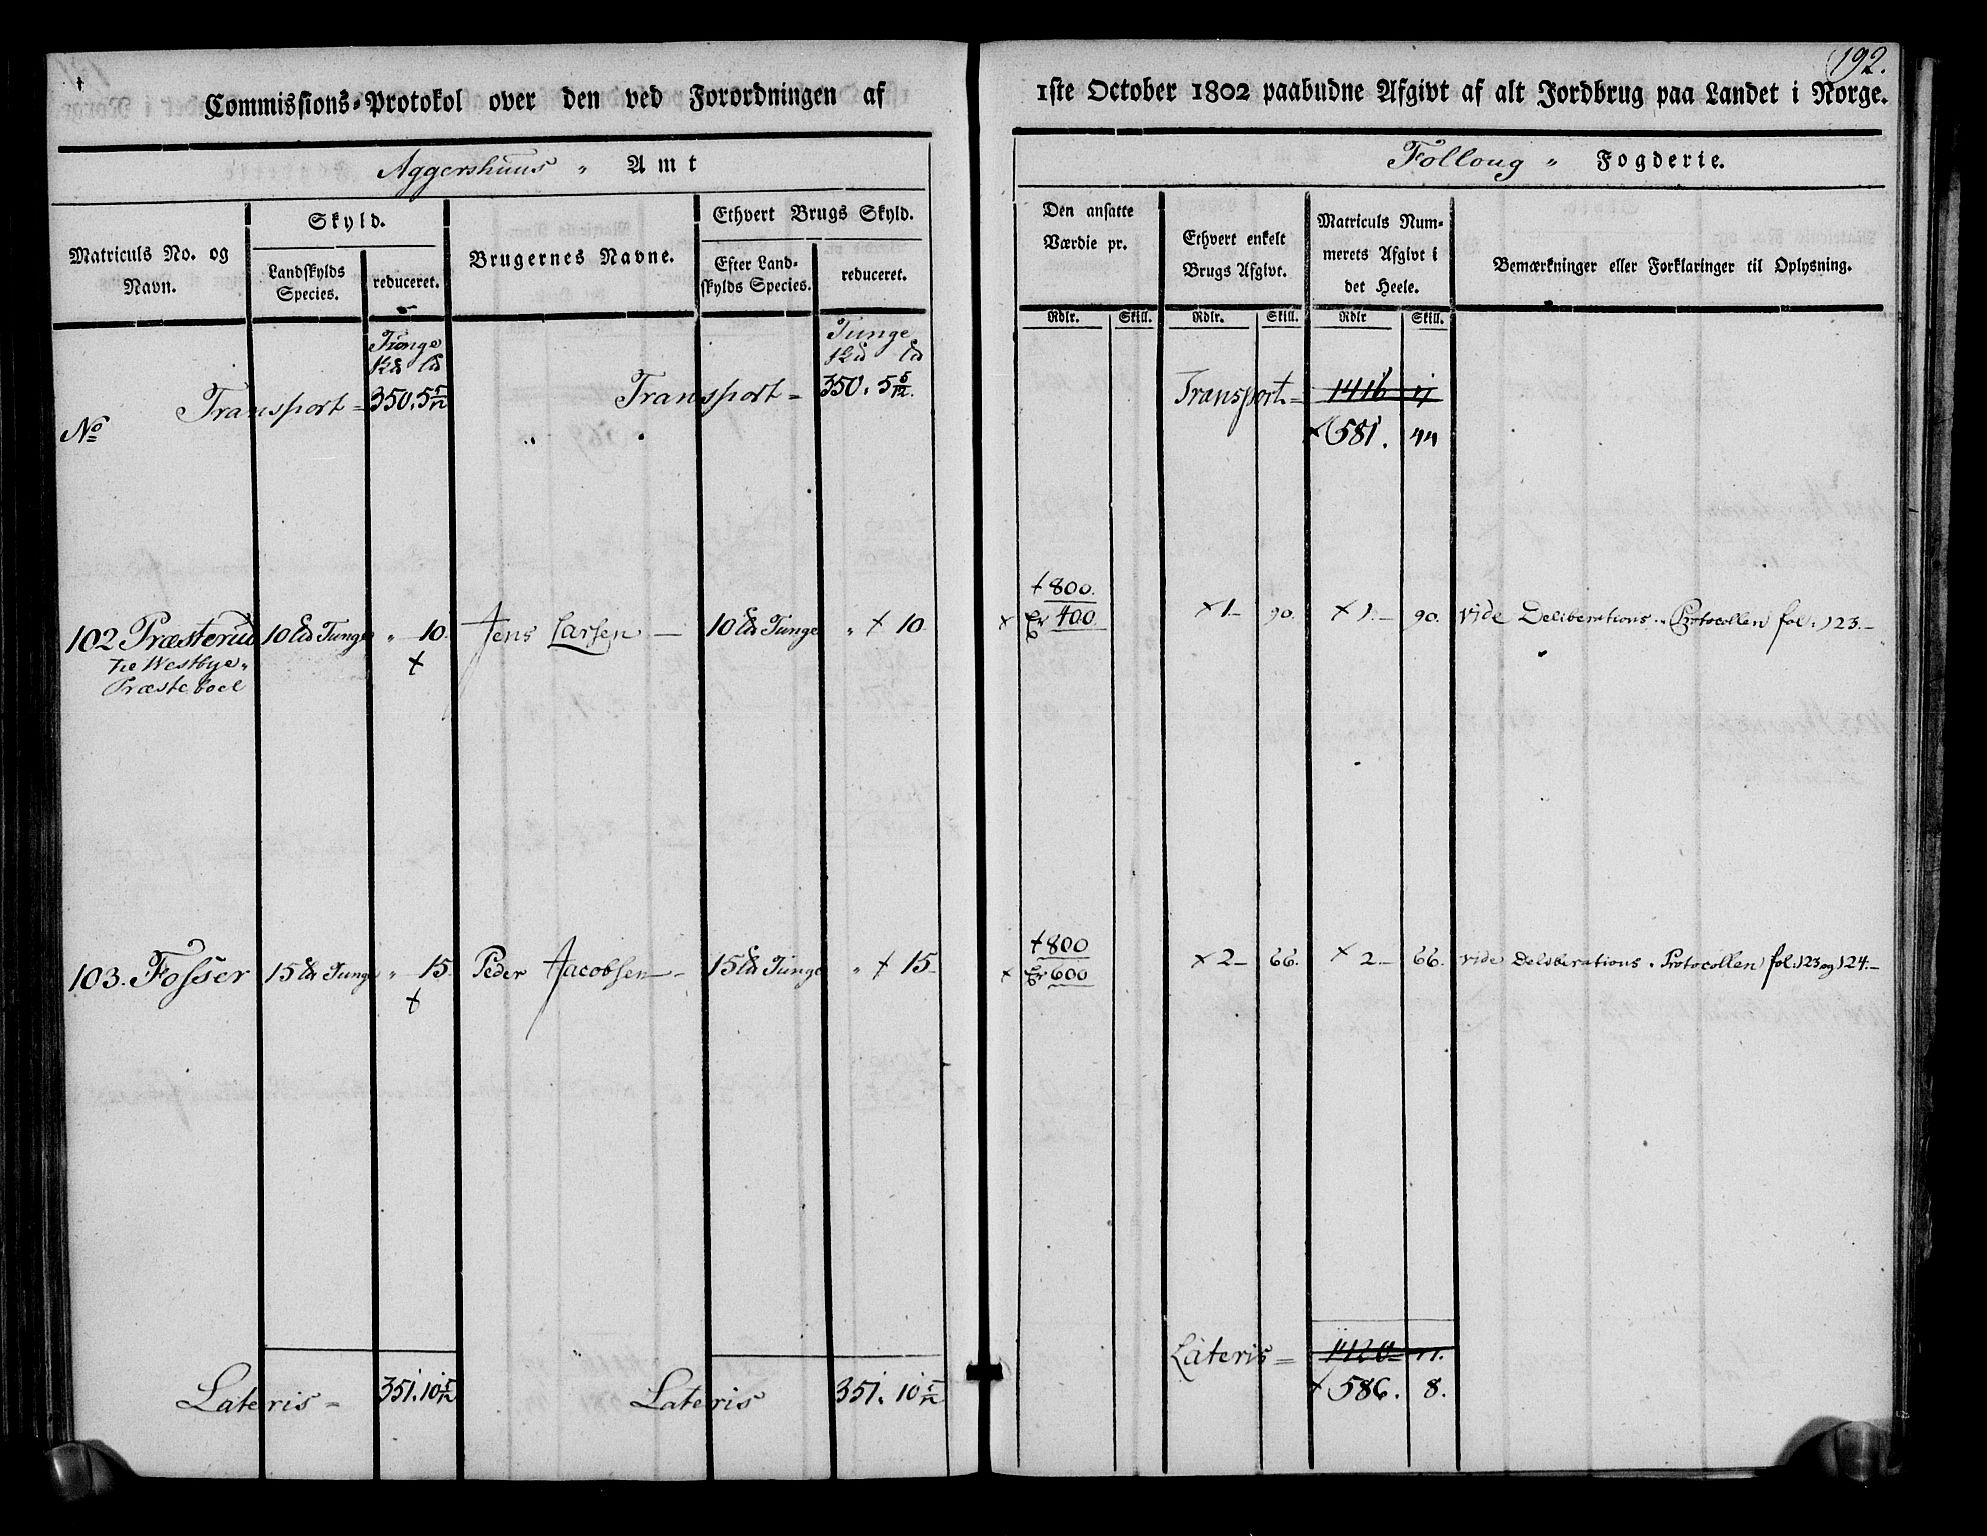 192.
Commissions-Protokol over den ved Forordningen af 1ste October 1802 paabudne Afgivt af alt Jordbrug paa Landet i Norge.
Aggershuus " Amt
Folloug " Fogderie.
Matriculs No. og Navn.
Skyld.
Landskylds Species.
reduceret.
Brugernes Navne.
Ethvert Brugs Skyld.
Efter Landskylds Species.
reduceret.
Den ansatte Værdie pr.
Ethvert enkelt Brugs Afgivt.
Matriculs Nummerets Afgivt i det Heele.
Bemærkninger eller Forklaringer til Oplysning.
Rdlr. Skill. Rdlr. Skill. Rdlr Skill.
Tunge Tunge
Transport = 350. 5 5/12 Transport = 350. 5 5/12. Transport = 1416 11
No
× 581. 44
+ 800.
102 Præsterud 10 Ld Tunge " 10. Jens Larsen — 10 Ld Tunge " + 10. × Er 400 × 1 — 90. × 1. — 90. vide Deliberations-Protocollen fol: 123. —
til Westbye "
Præsteboel
+
+ 800
103. Fosser 15 Ld Tunge " 15. Peder Jacobsen — 15 Ld Tunge " + 15 × Er 600 × 2 — 66. × 2 — 66. vide Deliberations-Protocollen fol: 123 og 124. —
+
Lateris = 1420 11.
Lateris = 351. 10 5/12 Lateris 351. 10 5/12 + 586. 8.